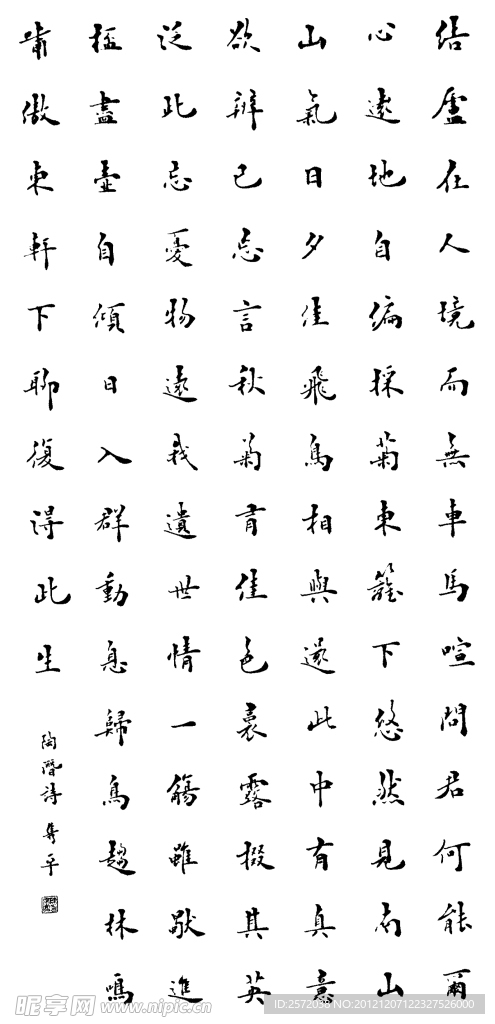 結廬在人境而無車馬喧問君何能爾
心遠地自偏採菊東籬下悠然見南山
山氣日夕佳飛鳥相與還此中有真意
欲辨已忘言秋菊有佳色裛露掇其英
泛此忘憂物遠我遺世情一觴雖獨進
杯盡壺自傾日入群動息歸鳥趨林鳴
嘯傲東軒下聊復得此生
陶潛詩 隽平
昵享网 www.nipic.com
ID:2572038 NO:20121207122327526000